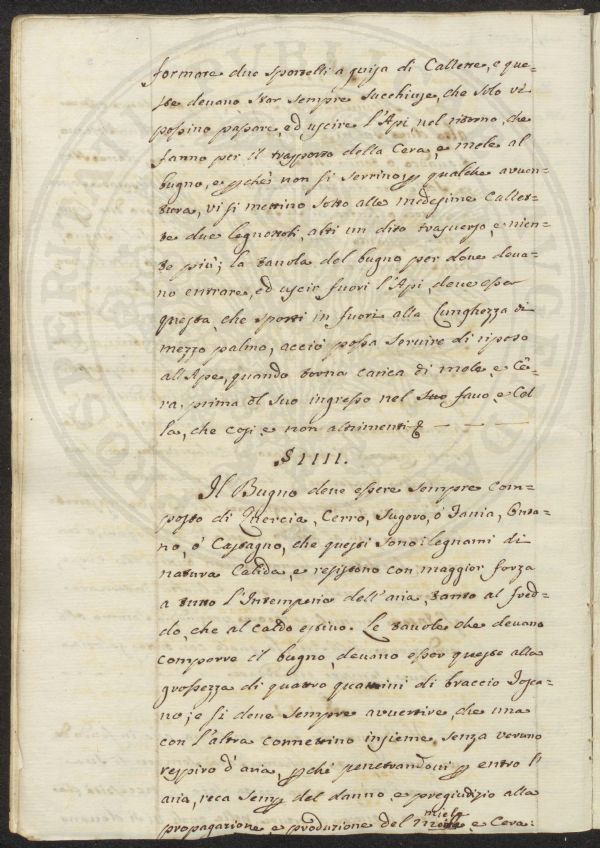 formare due sportelli a guisa di Callette, e que=
ste devano star sempre succhiuse, che solo vi
possino passare, ed uscire l'Api nel ritorno, che
fanno per il trasporto della Cera, e mele al
bugno, e pchè non si serrino p qualche avven=
tura, vi si mettino sotto alle medesime Callet=
te due legnotti, alti un dito trasverso, e nien=
te più; la tavola del bugno per dove deva=
no entrare, ed uscir fuori l'Api, deve esser
questa, che sporti in fuori alla Lunghezza di
mezzo palmo, acciò possa servire di riposo
all'Ape, quando torna carica di mele, e Ce=
ra, prima del suo ingresso nel suo favo, e Col
la, che così, e non altrimenti &
§ IIII.
Il Bugno deve essere sempre com=
posto di Quercia, Cerro, Sugoro, ò Fania, Onta=
no, ò Castagno, che questi sono legnami di
natura Calida, e resistono con maggior forza
a tutto l'Intemperia dell'aria, tanto al fred=
do, che al caldo estivo. Le tavole che devano
comporre il bugno, devano esser queste alla
grossezza di quattro quattrini di braccio Tosca=
no; e si deve sempre avvertire, che una
con l'altra connettino insieme, senza veruno
respiro d'aria, pchè penetrandovi p entro l'
aria, reca semp del danno, e pregiudizio alla
propagazione, e produzione del miele e Cera: